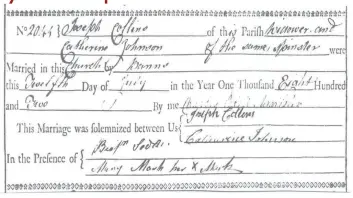 No 2041 { Joseph Collens of the Parish Widower and
Catherine Johnson of the same Spinster were
Married in this Church by Banns
this Twelfth Day of July in the Year One Thousand Eight Hundred
and Two By me
This Marriage was solemnized between Us { Joseph Collens
Catherine Johnson
In the Presence of {
Mary Mark her X Mark